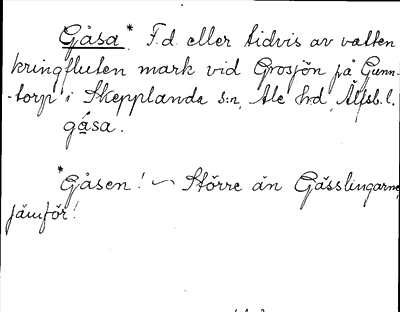 Gåsa* F.d. eller tidvis av vatten
kringfluten mark vid Grosjön på Gunn-
-torp i Skepplanda s:n, Ale Hrd, Älfsb. l.
gåsa.
*Gåsen! ~ Större än Gässlingarne,
jämför!